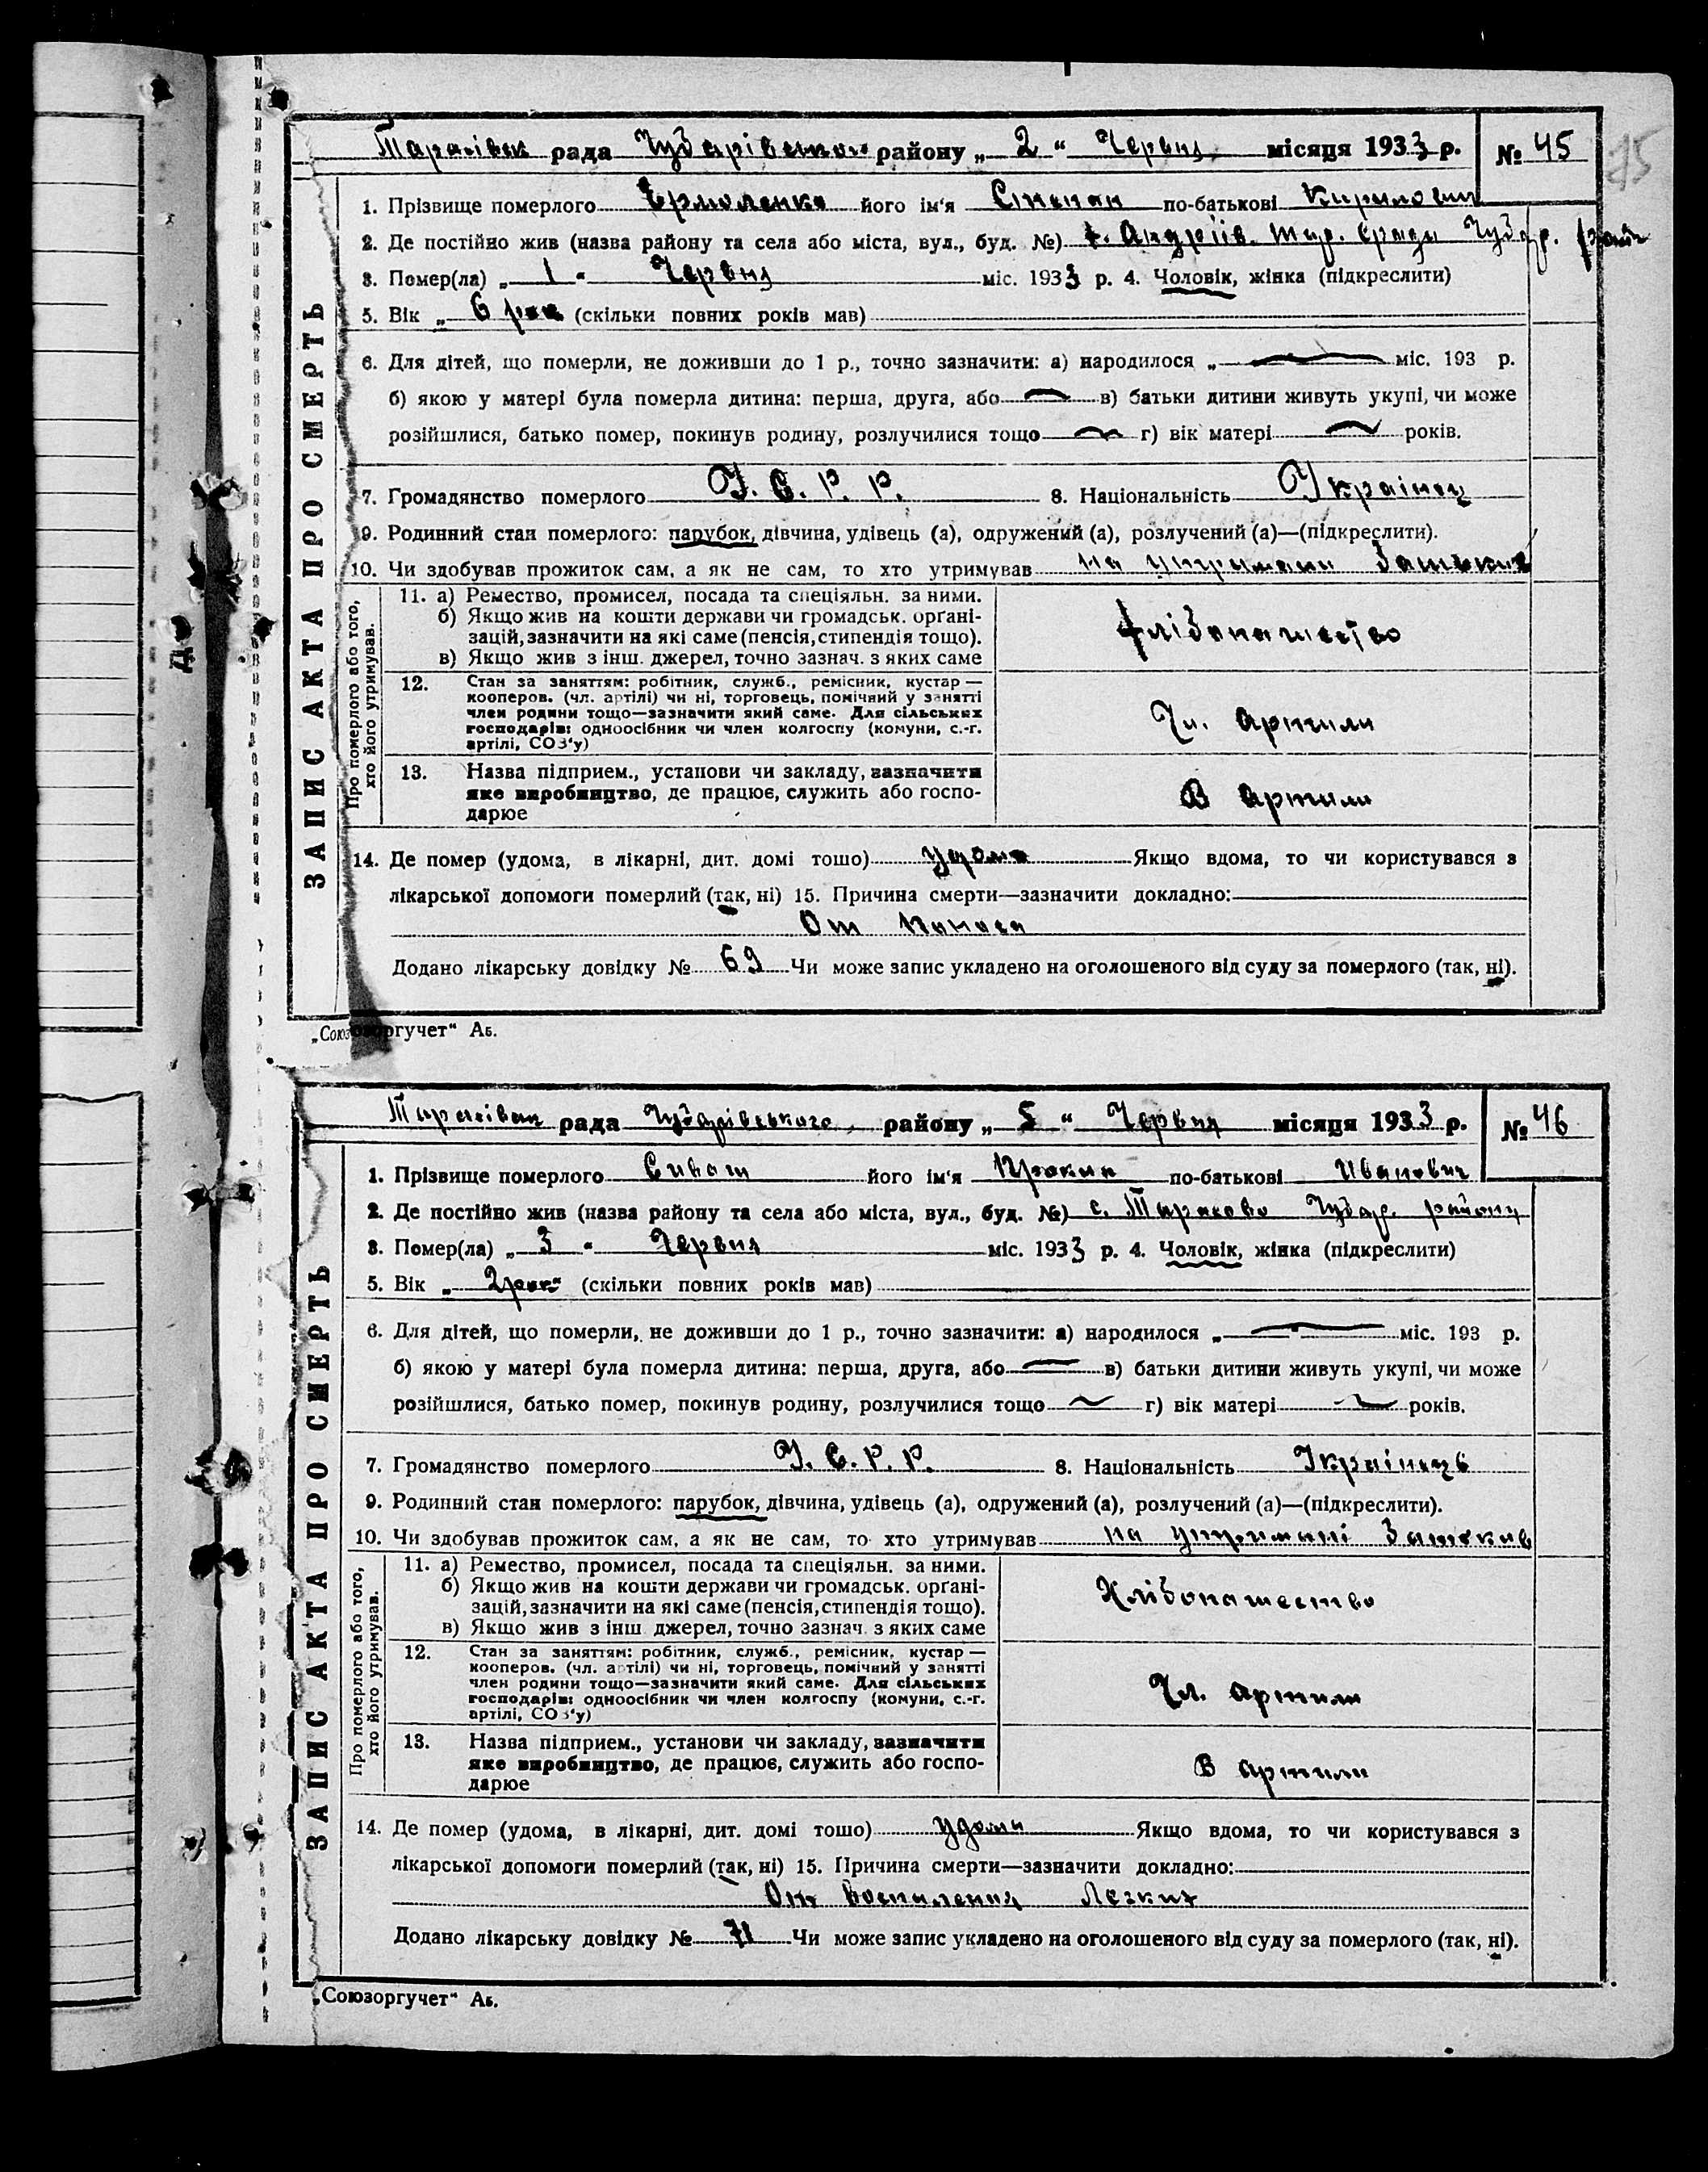 Тарасівск рада Чубарівського району „ 2 “ Червня місяця 1933 р. № 45
15
ЗАПИС АКТА ПРО СМЕРТЬ
1. Прізвище померлого Ермоленко його ім'я Степан по-батькові Кирилович
2. Де постійно жив (назва району та села або міста, вул., буд. №) х. Андріїв. Тар. Сради Чубар. району
3. Помер(ла) „ 1 “ Червня міс. 1933 р. 4. Чоловік, жінка (підкреслити)
5. Вік „ 6 рок (скільки повних років мав)
6. Для дітей, що померли, не доживши до 1 р., точно зазначити: а) народилося „ міс. 193 р.
б) якою у матері була померла дитина: перша, друга, або в) батьки дитини живуть укупі, чи може
розійшлися, батько помер, покинув родину, розлучилися тощо г) вік матері років.
7. Громадянство померлого У. С. Р. Р. 8. Національність Українец
9. Родинний стан померлого: парубок, дівчина, удівець (а), одружений (а), розлучений (а)—(підкреслити).
10. Чи здобував прожиток сам, а як не сам, то хто утримував на утримани батьків
Про померлого або того, хто його утримував.
11. а) Ремество, промисел, посада та спеціяльн. за ними.
б) Якщо жив на кошти держави чи громадськ. орґані-
зацій, зазначити на які саме (пенсія, стипендія тощо).
в) Якщо жив з інш. джерел, точно зазнач. з яких саме
Хлібопашество
12. Стан за заняттям: робітник, служб., ремісник, кустар —
кооперов. (чл. артілі) чи ні, торговець, помічний у занятті
член родини тощо—зазначити який саме. Для сільських
господарів: одноосібник чи член колгоспу (комуни, с.-г.
артілі, СОЗ'у)
Чл. артили
13. Назва підприєм., установи чи закладу, зазначити
яке виробництво, де працює, служить або госпо-
дарює
В артили
14. Де помер (удома, в лікарні, дит. домі тощо) удома Якщо вдома, то чи користувався з
лікарської допомоги померлий (так, ні) 15. Причина смерти—зазначити докладно:
От поноса
Додано лікарську довідку № 69 Чи може запис укладено на оголошеного від суду за померлого (так, ні).
„Союзоргучет“ Аб.
Тарасівск рада Чубарівського району „ 5 “ Червня місяця 1933 р. № 46
ЗАПИС АКТА ПРО СМЕРТЬ
1. Прізвище померлого Сиваш його ім'я по-батькові Иванович
2. Де постійно жив (назва району та села або міста, вул., буд. №) с. Тарасово Чубар. району
3. Помер(ла) „ 3 “ Червня міс. 1933 р. 4. Чоловік, жінка (підкреслити)
5. Вік „ 2 рок (скільки повних років мав)
6. Для дітей, що померли, не доживши до 1 р., точно зазначити: а) народилося „ міс. 193 р.
б) якою у матері була померла дитина: перша, друга, або в) батьки дитини живуть укупі, чи може
розійшлися, батько помер, покинув родину, розлучилися тощо г) вік матері років.
7. Громадянство померлого У. С. Р. Р. 8. Національність Українець
9. Родинний стан померлого: парубок, дівчина, удівець (а), одружений (а), розлучений (а)—(підкреслити).
10. Чи здобував прожиток сам, а як не сам, то хто утримував на утримані батьків
Про померлого або того, хто його утримував.
11. а) Ремество, промисел, посада та спеціяльн. за ними.
б) Якщо жив на кошти держави чи громадськ. орґані-
зацій, зазначити на які саме (пенсія, стипендія тощо).
в) Якщо жив з інш. джерел, точно зазнач. з яких саме
Хлібопашество
12. Стан за заняттям: робітник, служб., ремісник, кустар —
кооперов. (чл. артілі) чи ні, торговець, помічний у занятті
член родини тощо—зазначити який саме. Для сільських
господарів: одноосібник чи член колгоспу (комуни, с.-г.
артілі, СОЗ'у)
Чл. артили
13. Назва підприєм., установи чи закладу, зазначити
яке виробництво, де працює, служить або госпо-
дарює
В артили
14. Де помер (удома, в лікарні, дит. домі тощо) удома Якщо вдома, то чи користувався з
лікарської допомоги померлий (так, ні) 15. Причина смерти—зазначити докладно:
От воспаления Легких
Додано лікарську довідку № 71 Чи може запис укладено на оголошеного від суду за померлого (так, ні).
„Союзоргучет“ Аб.